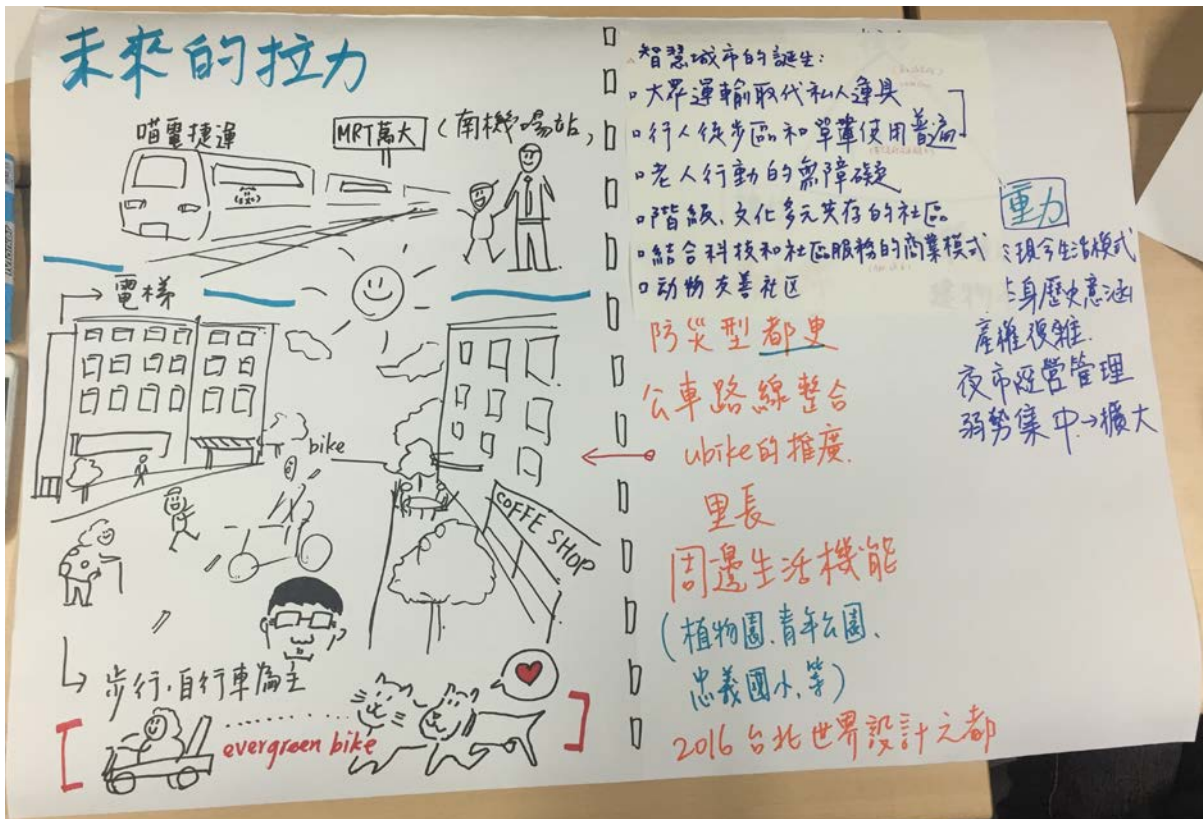 未來的拉力
喵電捷運
MRT萬大
(南機場站)
電梯
bike
COFFE SHOP
步行.自行車為主
evergreen bike
智慧城市的誕生:
大眾運輸取代私人運具
行人徒步區和單車使用普遍
老人行動的無障礙
階級、文化多元共存的社區
結合科技和社區服務的商業模式
动物友善社区
防災型都更
公車路線整合
ubike的推廣.
里長
周邊生活機能
(植物園.青年公園.
忠義國小.等)
2016台北世界設計之都
重力
現今生活模式
身歷史意涵
產權復雜.
夜市經營管理
弱勢集中→擴大